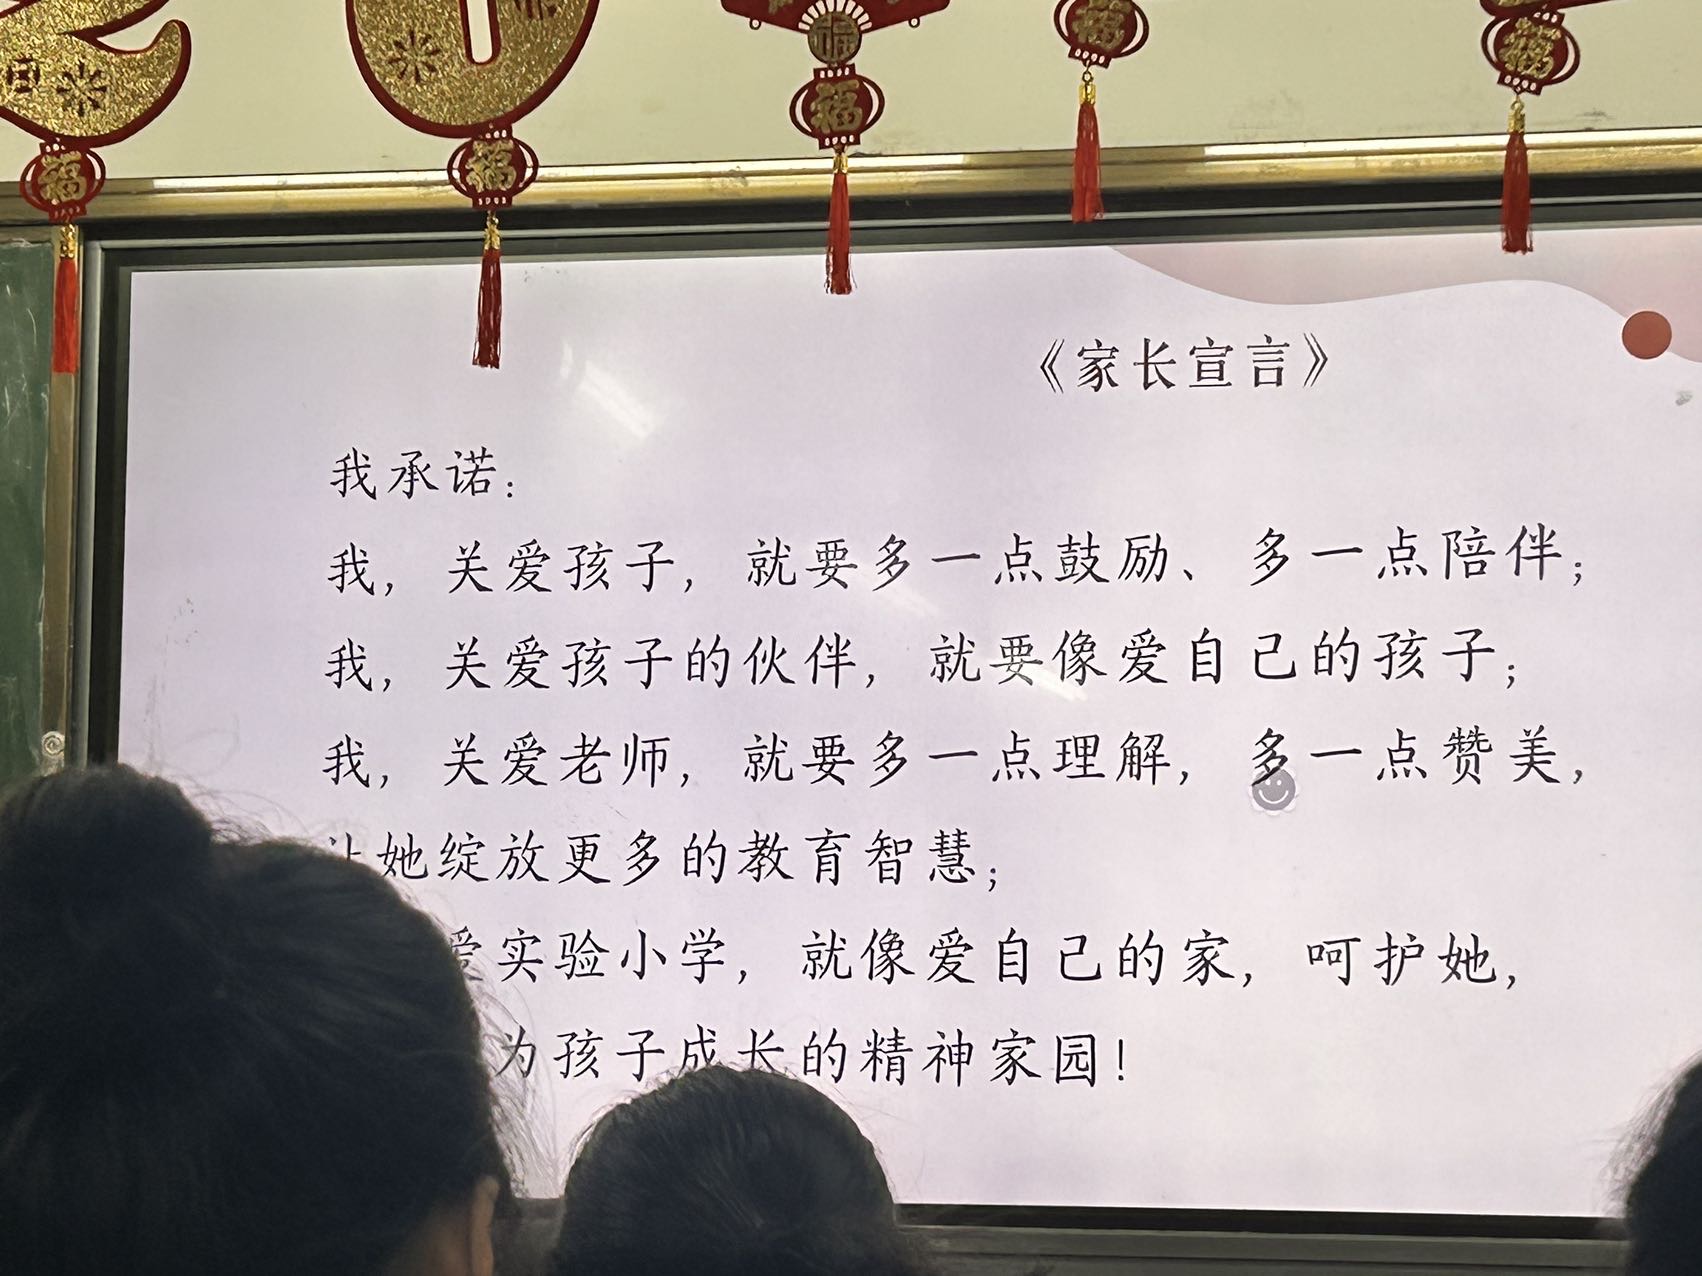 福
福
福
福
福
福
《家长宣言》
我承诺:
我，关爱孩子，就要多一点鼓励、多一点陪伴；
我，关爱孩子的伙伴，就要像爱自己的孩子；
我，关爱老师，就要多一点理解，多一点赞美，
她绽放更多的教育智慧；
爱实验小学，就像爱自己的家，呵护她，
为孩子成长的精神家园！